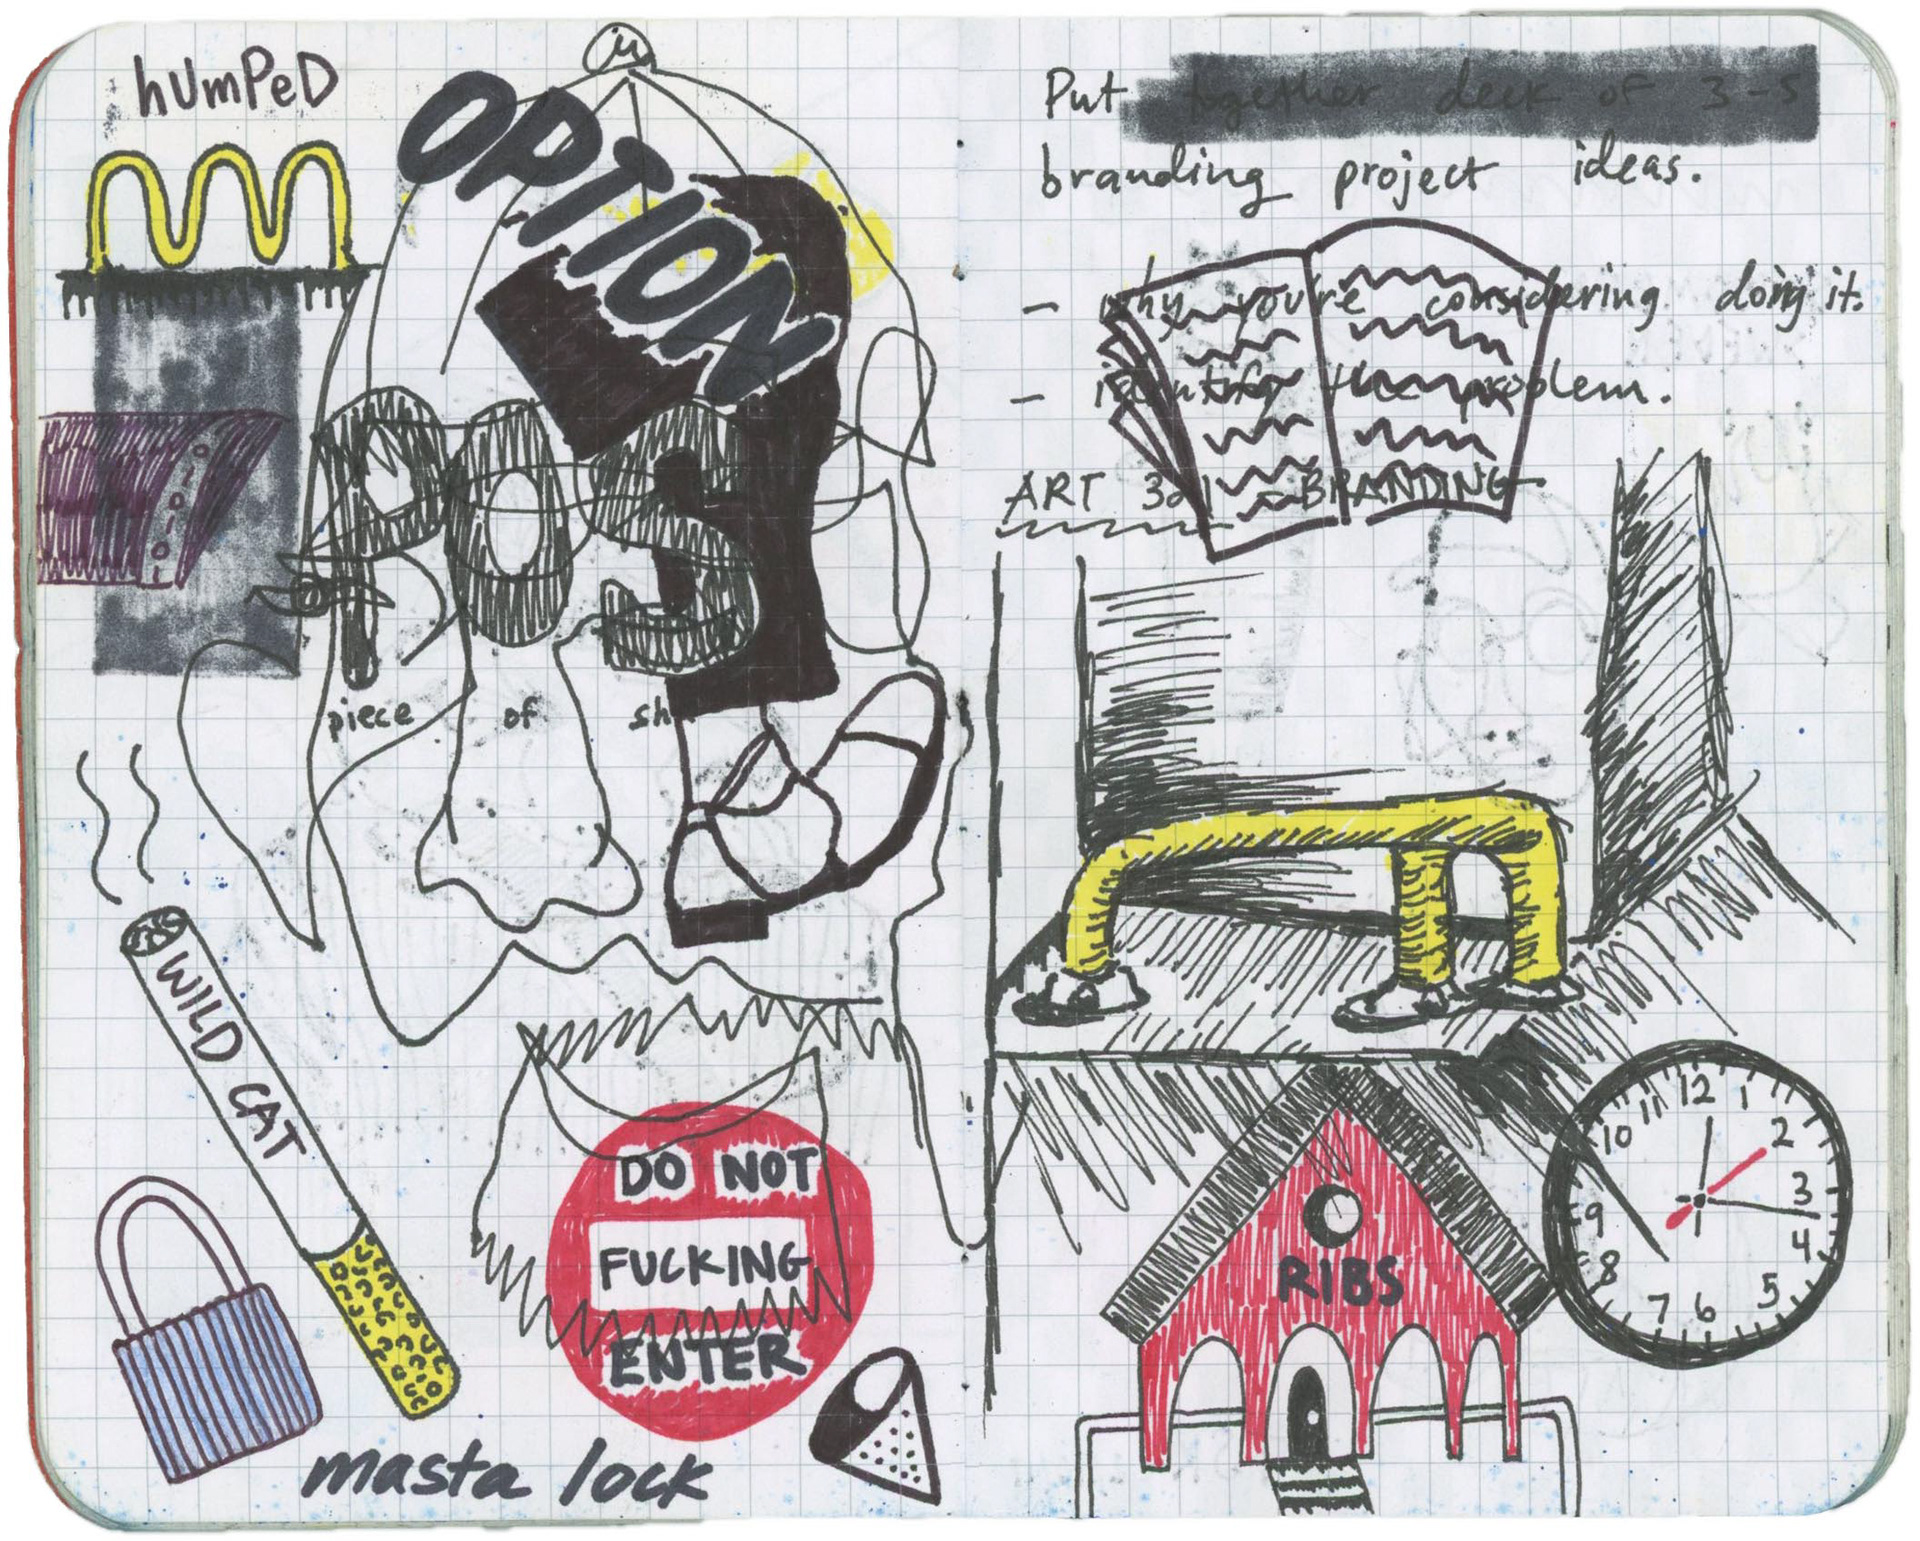 humPeD
OPTION
POS
piece of sh
WILD CAT
DO NOT
FUCKING
ENTER
masta lock
Put together deck of 3-5
branding project ideas.
- why you're considering doing it.
- identify the problem.
ART 321 BRANDING
RIBS
12 1 2 3 4 5 6 7 8 9 10 11